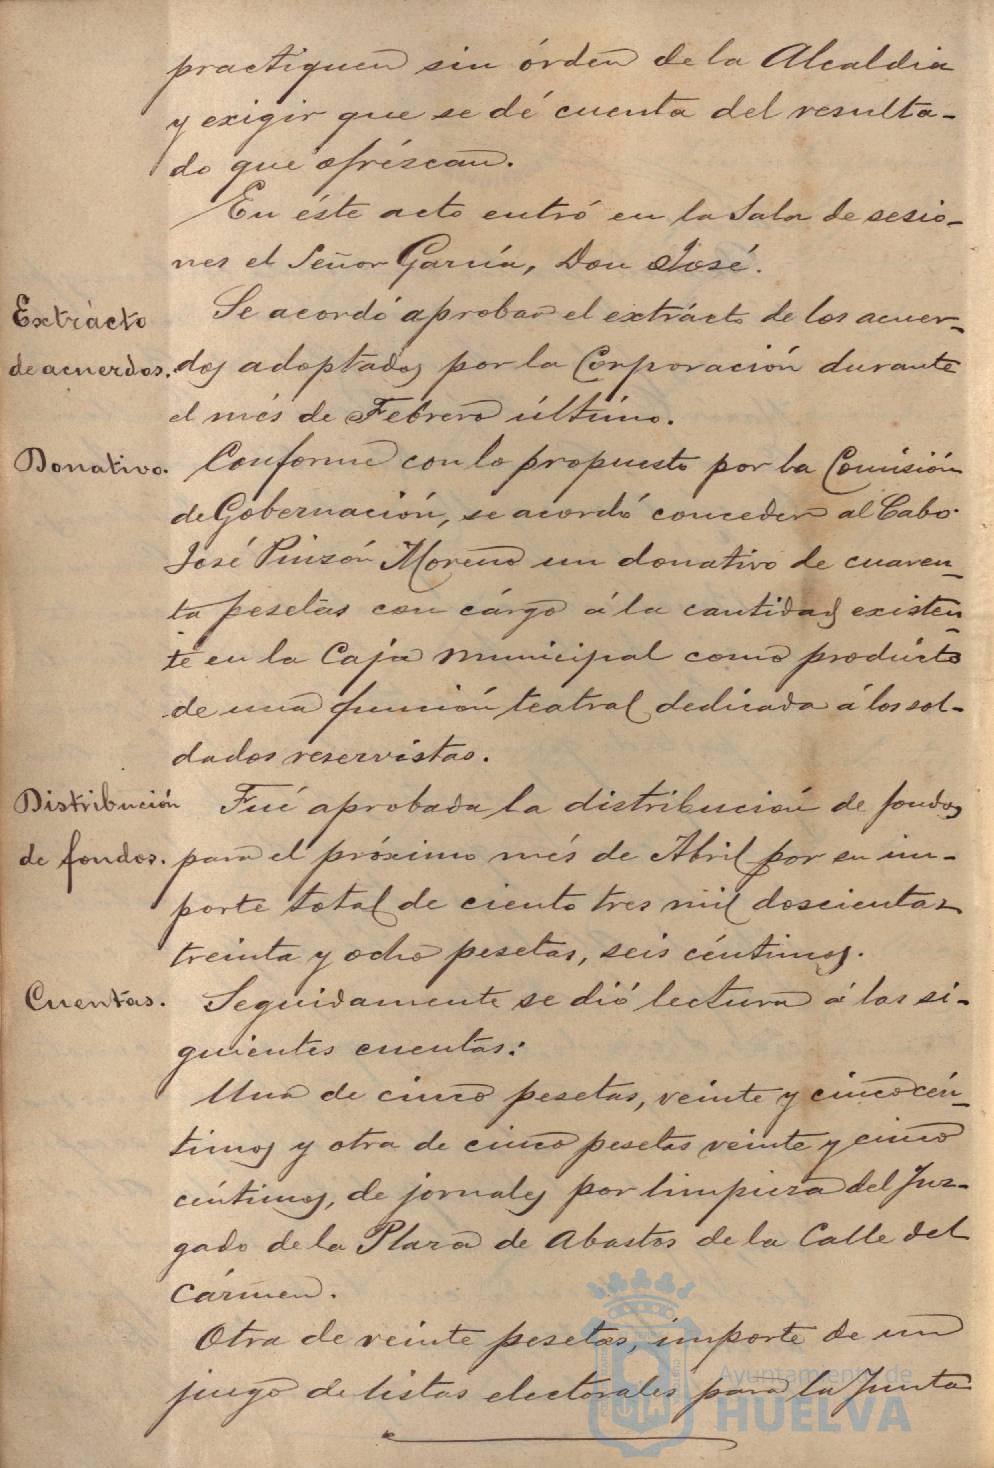 practiquen sin órden de la Alcaldia
y exigir que se dé cuenta del resulta-
do que ofrézcan.
En éste acto entró en la Sala de sesio-
nes el Señor García, Don José.
Extràcto
Se acordó aprobar el extrácto de los acuer-
de acuerdos.
dos adoptados por la Corporación durante
el més de Febrero último.
Donativo.
Conforme con lo propuesto por la Comisión
de Gobernación, se acordó conceder al Cabo
José Pinzón Moreno un donativo de cuaren-
ta pesetas con cárgo á la cantidad existen-
te en la Caja municipal como producto
de una función teatral dedicada á los sol-
dados reservistas.
Distribución
Fué aprobada la distribución de fondos
de fondos.
para el próximo més de Abril por su im-
porte total de ciento tres mil doscientas
treinta y ocho pesetas, seis céntimos.
Cuentas.
Seguidamente se dió lectura á las si-
guientes cuentas:
Una de cinco pesetas, veinte y cinco cén-
timos y otra de cinco pesetas veinte y cinco
céntimos, de jornales por limpieza del Juz-
gado de la Plaza de Abastos de la Calle del
Cármen.
Otra de veinte pesetas, importe de un
juego de listas electorales para la Junta
Ayuntamiento de
HUELVA